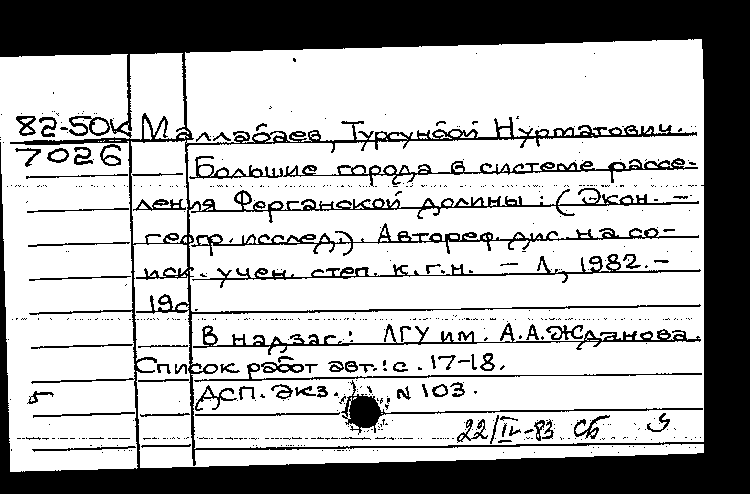 82-50к Маллабаев, Турсунбой Нурматович.
7026
Большие города в системе рассе-
ления Ферганской долины : (Экон. -
геогр. исслед.). Автореф. дис. на со-
иск. учен. степ. к.г.н. - Л., 1982. -
19с.
В надзаг.: ЛГУ им. А.А.Жданова.
Список работ авт.: с. 17-18.
ДСП. Экз. N 103.
22/IV-83 СБ